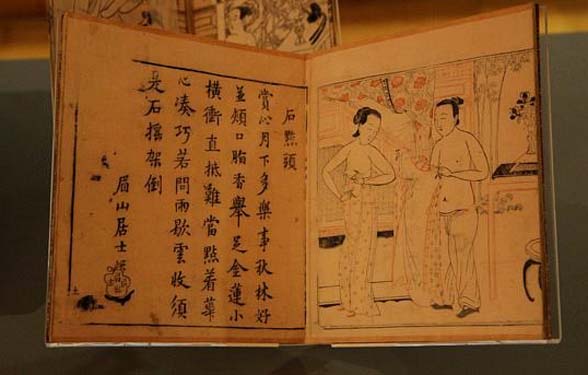 石點頭
賞心月下多樂事秋林好
並頸口脂香舉足金蓮小
橫衝直抵難當點着華
心湊巧若問雨歇雲收須
是石搖架倒
眉山居士